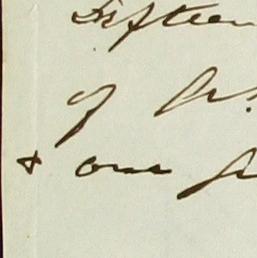 Fifteen
of
& one